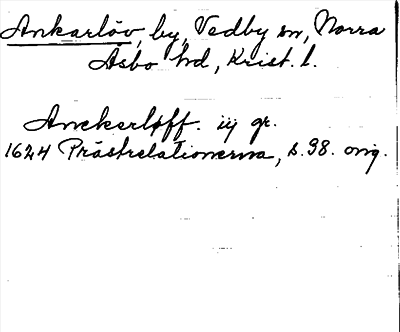 Ankarlöv, by, Vedby sn, Norra
Åsbo hd, Krist. l.
Anckerløff. iij gr.
1624 Prästrelationerna, s. 98. orig.